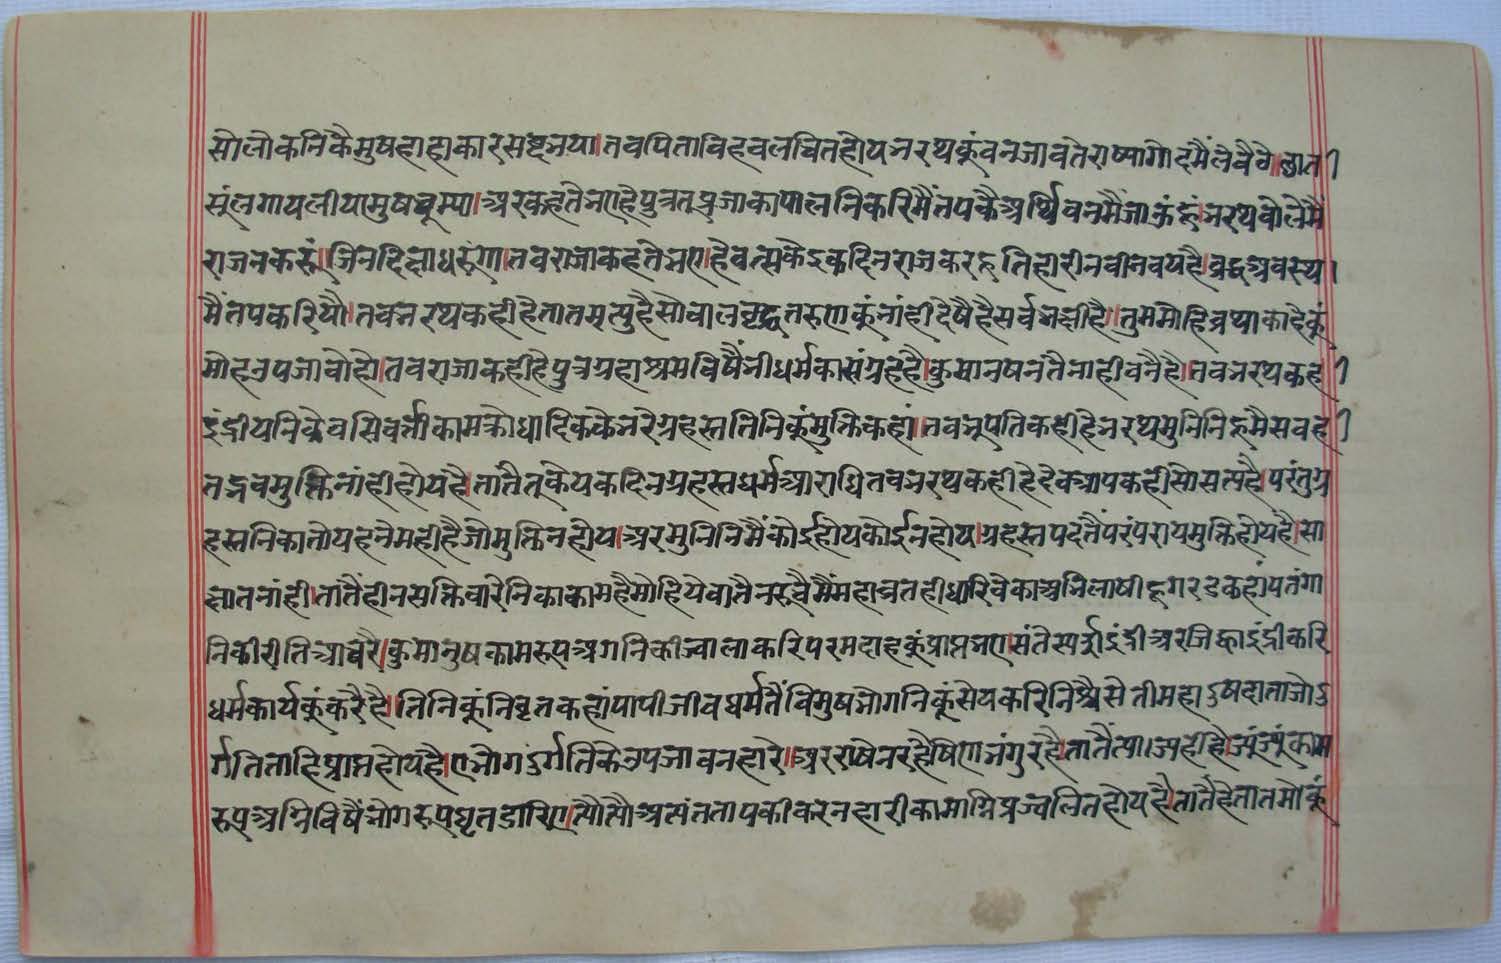 सो लोकनिकै मुष हाहाकार सष्ट भया। तव पिता विहवल चित होय भरथकूं वनु जावतै राष्या गोदमैं लेवै वे। छाती
सूं लगाय लीया मुष चूम्या। अर कहतै भए। हे पुत्र तू प्रजाका पालनि करि मैं तपकै अर्थि वनमैं जाऊं हूं। भरथ वोले मैं
राज न करूं। जिन दिक्षा धरूंगा। तव राजा कहतै भए। हे वत्स कैइक दिन राज करहु तिहारी नवीन वय है। व्रद्ध अवस्था
मैं तप करियौ। तव भरथ कही हे तात मृत्यु है सो वाल वृद्ध तरुणकूं नांही देषै है सर्व भक्षी है। तुम मोहि व्रथा काहेकूं
मोह उपजावो हो। तव राजा कही हे पुत्र ग्रहाश्रम विषैं भी धर्मका संग्रह है। कुमानषनतै नाही वनै है। तव भरथ कही
इंद्रीयनिकै वसि वर्ती काम क्रोधादिककै भरे ग्रहस्त तिनिकूं मुक्ति कहां। तव भूपति कही हे भरथ मुनिनिहूमै सवही
तद्भव मुक्ति नांही होय है। तातै तू केयक दिन ग्रहस्त धर्म आराधि तव भरथ कही हे देव आप कही सो सत्य है। परंतु ग्र
हस्तनिका तो यह नेमही है जो मुक्ति न होय। अर मुनिनिमैं कोई होय कोई न होय। ग्रहस्त पदतैं परंपराय मुक्ति होय है। सा
क्षात नांही। तातैं हीन सक्तिवारेनिका काम है मोहि ये वातै न रुचै मैं महाव्रतही धारिवेका अभिलाषी हू गरड कहां पतंगा
निकी रीति आचरै। कुमानुष कामरूप अगनिकी ज्वाला करि परम दाहकूं प्राप्त भए। संते स्पर्श इंद्री अर जिव्हा इंद्री करि
धर्म कार्यकूं करै है। तिनिकूं निवृत कहां पापी जीव धर्मतैं विमुष भोगनिकूं सेय करि निश्चै सेती महा दुष दाता जो दु
र्गति ताहि प्राप्त होय है। ए भोग दुर्गतिके उपजावनहारे। अर राषे न रहै षिण भंगुर है। तातैं त्याज्य ही है। ज्यूं ज्यूं काम
रूप अग्नि विषैं भोगरूप घृत डारिए। त्यौ त्यौ अत्यंत तापकी करनहारी कामाग्नि प्रज्वलित होय है। तातै हे तात मोकूं